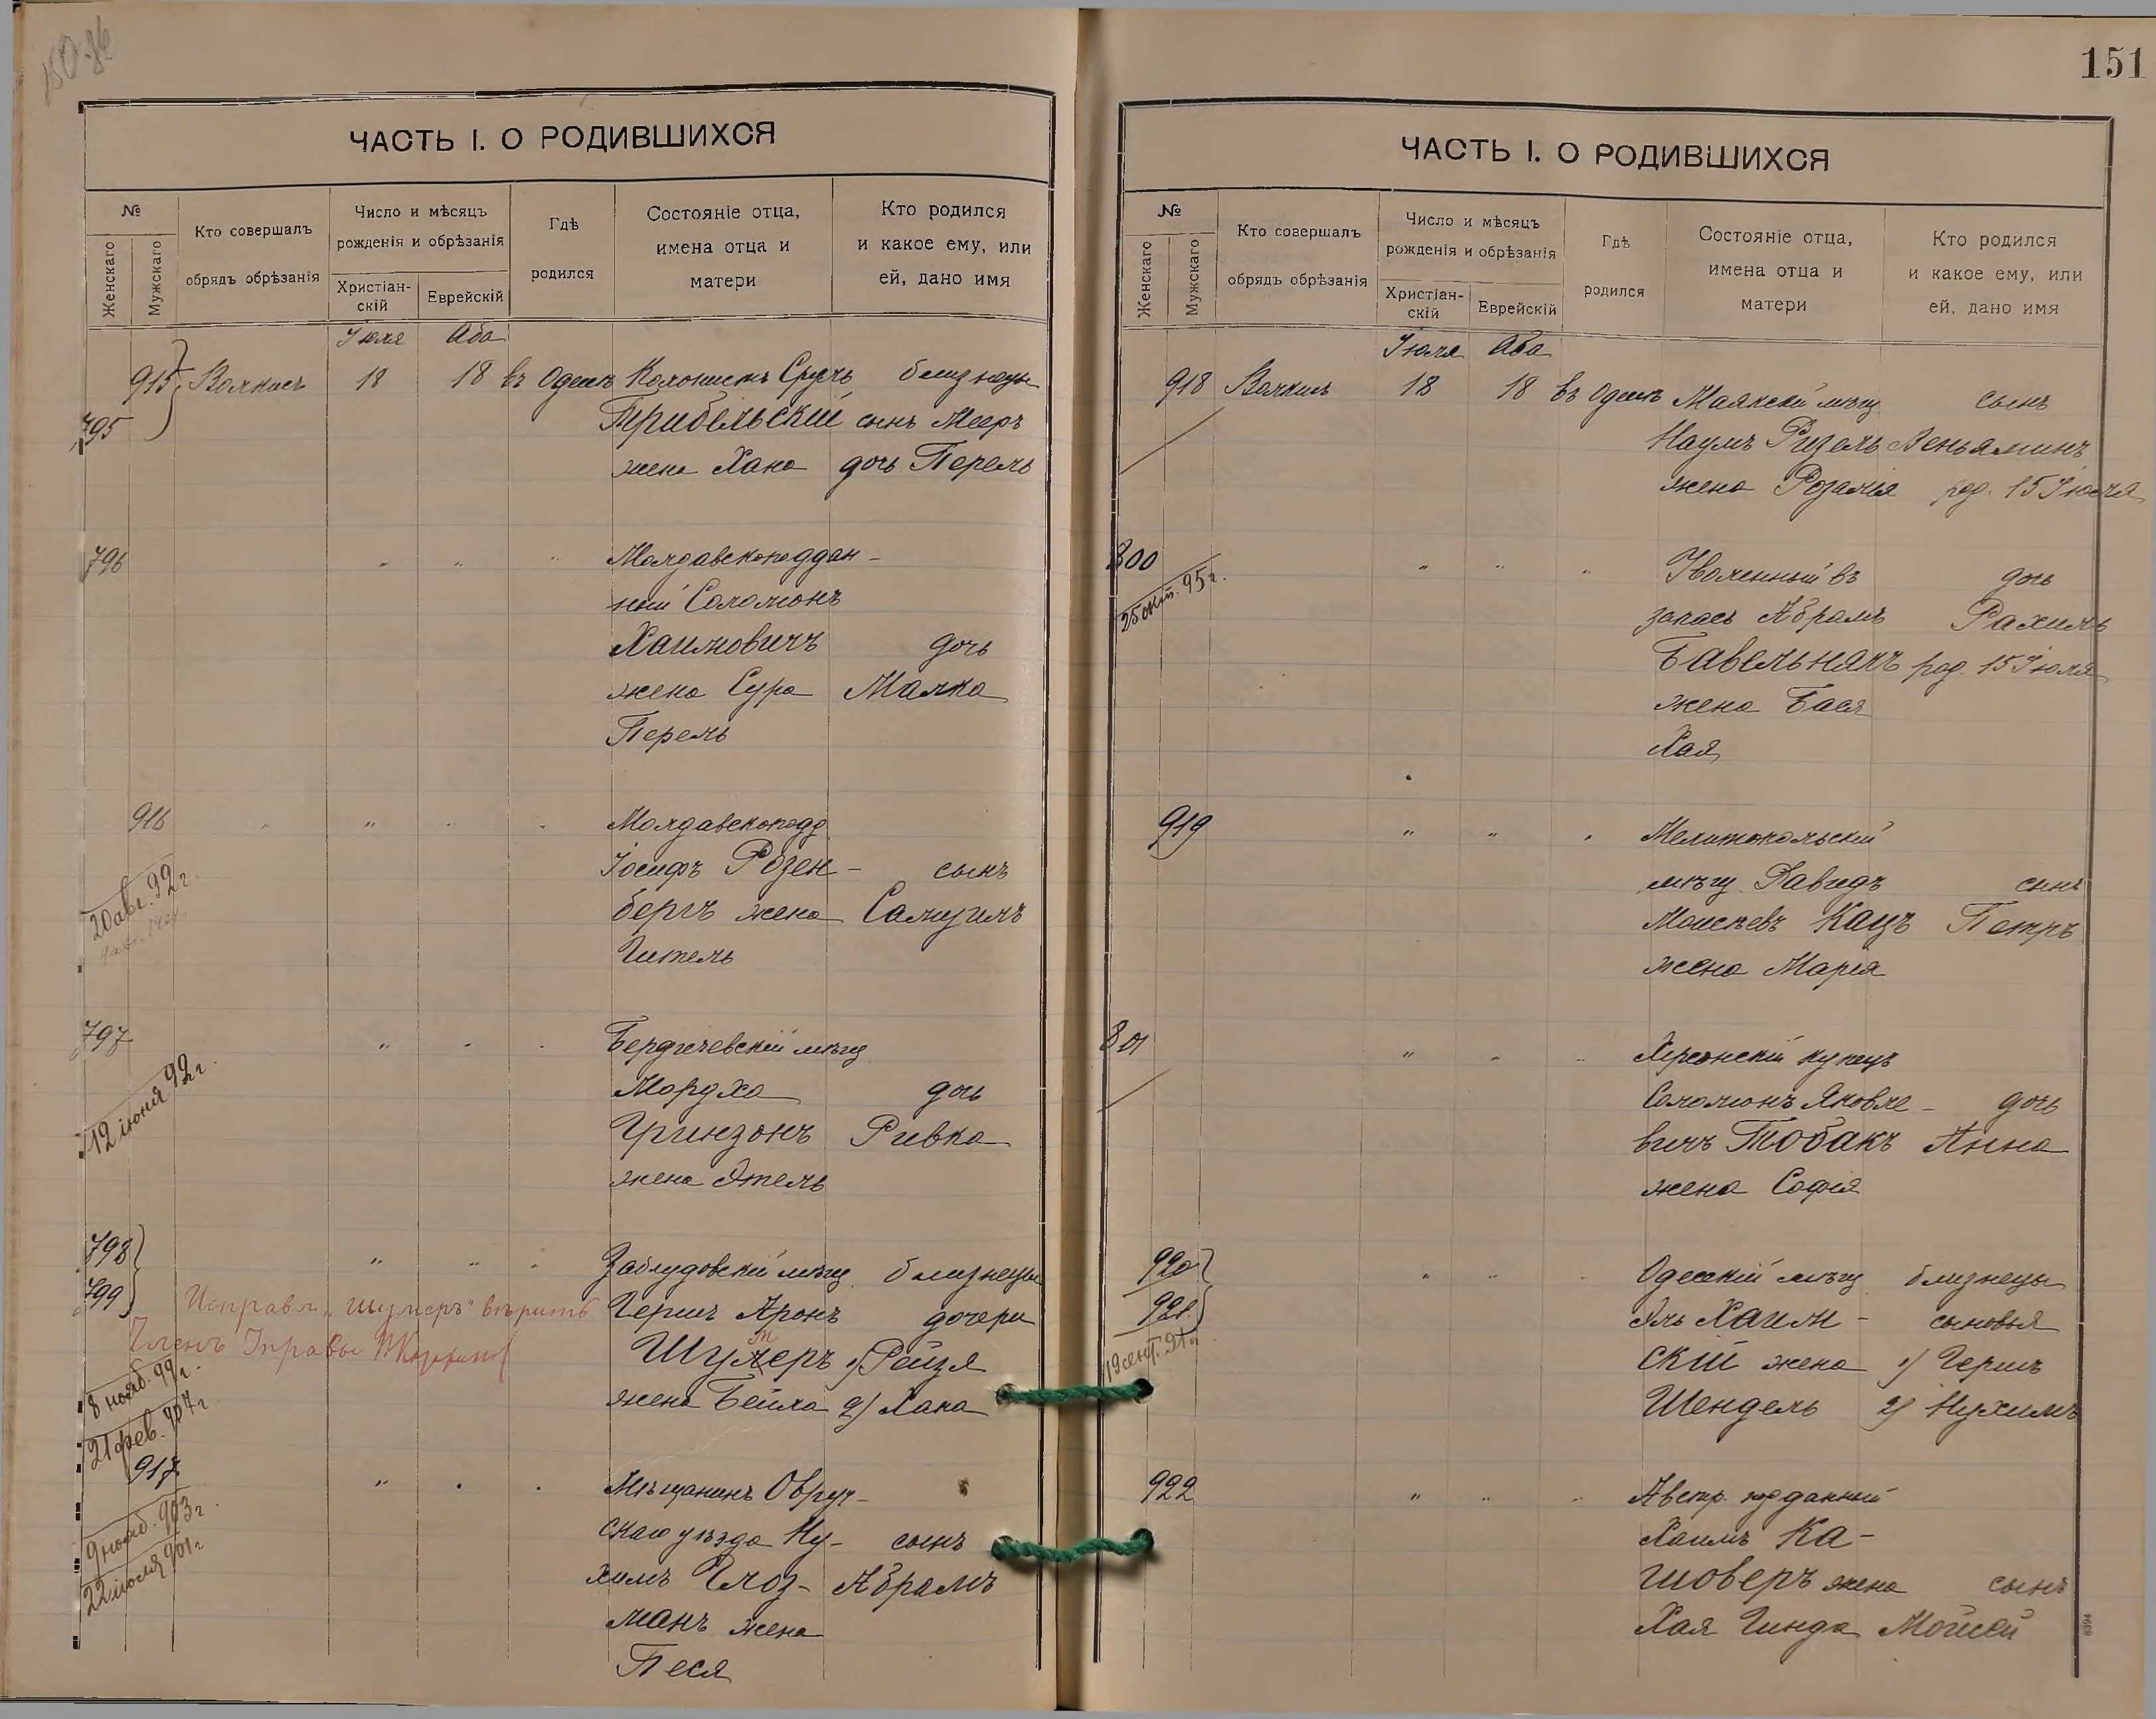 150
151
ЧАСТЬ I. О РОДИВШИХСЯ
№
Женскаго
Мужскаго
Кто совершалъ
обрядъ обрѣзанія
Число и мѣсяцъ
рожденія и обрѣзанія
Христіан-
скій
Еврейскій
Гдѣ
родился
Состояніе отца,
имена отца и
матери
Кто родился
и какое ему, или
ей, дано имя
Іюля Аба
915 18 18 въ Одессѣ Колонистъ Сруль близнецы
795 Трибельскій сынъ Мееръ
жена Хана дочь Перель
796 " " " Молдавскоподдан-
ный Соломонъ
Хаимовичъ дочь
жена Сура Малка
Перель
916 " " " " Молдавскоподд.
Іосифъ Розен- сынъ
20 авг. 92 г.
бергъ жена Самуилъ
Гитель
797 " " " Бердичевскій мѣщ.
Мордхо дочь
12 іюня 92 г.
Гринзонъ Ривка
жена Этель
798 " " " Заблудовскій мѣщ. близнецы
799 Исправл. „Шумеръ" вѣрить Гершъ Аронъ дочери
Членъ Управы
Шумеръ 1) Рейзя
8 нояб. 99 г.
жена Бейла 2) Хана
21 фев. 907 г.
917 " " " Мѣщанинъ Овруч-
9 нояб. 903 г.
скаго уѣзда Ну- сынъ
22 іюля 901 г.
химъ Глоз- Абрамъ
манъ жена
Песя
ЧАСТЬ I. О РОДИВШИХСЯ
№
Женскаго
Мужскаго
Кто совершалъ
обрядъ обрѣзанія
Число и мѣсяцъ
рожденія и обрѣзанія
Христіан-
скій
Еврейскій
Гдѣ
родился
Состояніе отца,
имена отца и
матери
Кто родился
и какое ему, или
ей, дано имя
Іюля Аба
918 18 18 въ Одессѣ Маякскій мѣщ. сынъ
Наумъ Ригель Веньяминъ
жена Розалія род. 15 Іюля
800 " " " Уволенный въ дочь
25 окт. 95 г.
запасъ Абрамъ Рахиль
Бавельнякъ род. 15 Іюля
жена Бася
Хая
919 " " " Мелитопольскій
мѣщ. Давидъ сынъ
Моисѣевъ Кацъ Петръ
жена Марія
801 " " " Херсонскій купецъ
Соломонъ Яковле- дочь
вичъ Тобакъ Анна
жена Софія
920 " " " Одесскій мѣщ. близнецы
921 Эль Хаим- сыновья
скій жена 1) Гершъ
Шендель 2) Нухимъ
922 " " " Австр. подданный
Хаимъ Ка-
шоверъ жена сынъ
Хая Гинда Мойсей